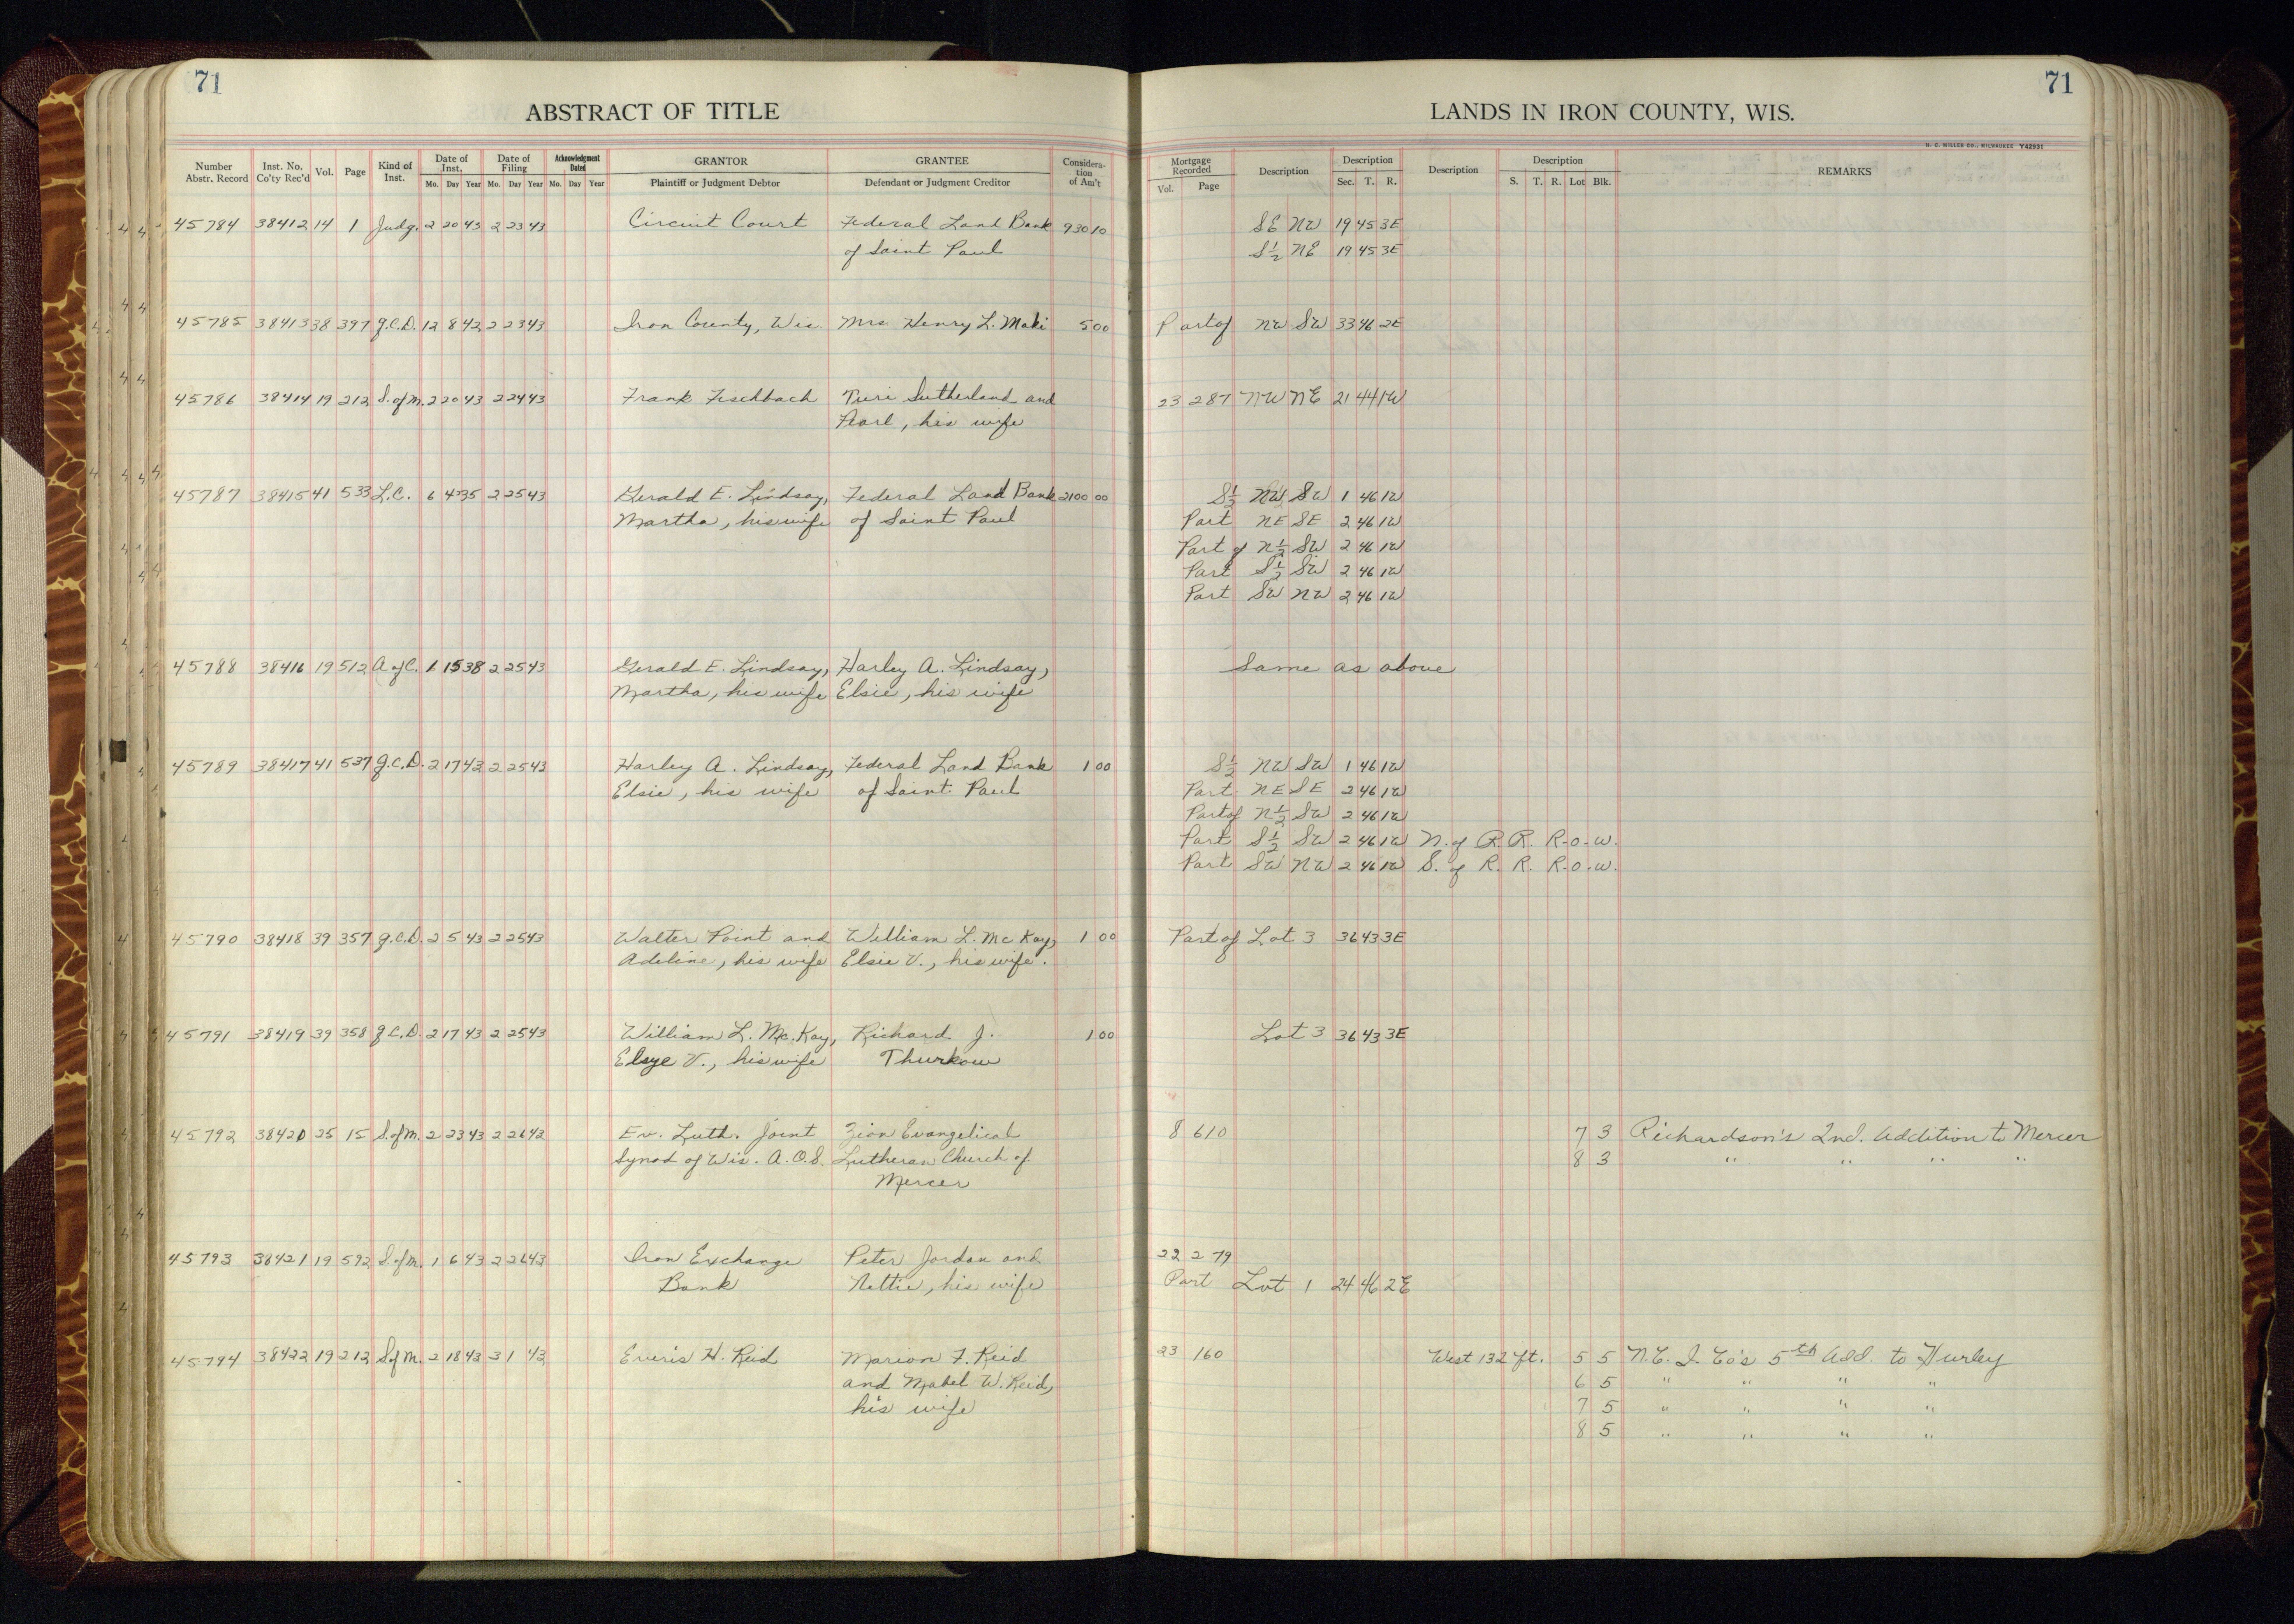 71
71
ABSTRACT OF TITLE
LANDS IN IRON COUNTY, WIS.
H. C. MILLER CO., MILWAUKEE Y42931
Number Abstr. Record Inst. No. Co'ty Rec'd Vol. Page Kind of Inst. Date of Inst. Mo. Day Year Date of Filing Mo. Day Year Acknowledgment Dated Mo. Day Year GRANTOR Plaintiff or Judgment Debtor GRANTEE Defendant or Judgment Creditor Considera-tion of Am't Mortgage Recorded Vol. Page Description Description Sec. T. R. Description Description S. T. R. Lot Blk. REMARKS
45784 38412 14 1 Judg. 2 20 43 2 23 43 Circuit Court Federal Land Bank 930 10 SE NW 19 45 3E
of Saint Paul S½ NE 19 45 3E
45785 38413 38 397 Q.C.D. 12 8 42 2 23 43 Iron County, Wis. Mrs Henry L. Maki 5 00 Part of NW SW 33 46 2E
45786 38414 19 212 S. of M. 2 20 43 2 24 43 Frank Fischbach Turi Sutherland and 23 287 NW NE 21 44 1W
Pearl, his wife
45787 38415 41 533 L.C. 6 4 35 2 25 43 Gerald E. Lindsay, Federal Land Bank 2100 00 S½ NW SW 1 46 1W
Martha, his wife of Saint Paul Part NE SE 2 46 1W
Part of N½ SW 2 46 1W
Part S½ SW 2 46 1W
Part SW NW 2 46 1W
45788 38416 19 512 A of C. 1 15 38 2 25 43 Gerald E. Lindsay, Harley A. Lindsay, Same as above
Martha, his wife Elsie, his wife
45789 38417 41 537 Q.C.D. 2 17 43 2 25 43 Harley A. Lindsay, Federal Land Bank 1 00 S½ NW SW 1 46 1W
Elsie, his wife of Saint Paul Part NE SE 2 46 1W
Part of N½ SW 2 46 1W
Part S½ SW 2 46 1W N. of R. R. R-o-w.
Part SW NW 2 46 1W S. of R. R. R-o-w.
45790 38418 39 357 Q.C.D. 2 5 43 2 25 43 Walter Point and William L. Mc Kay, 1 00 Part of Lot 3 36 43 3E
Adeline, his wife Elsie V., his wife.
45791 38419 39 358 Q.C.D. 2 17 43 2 25 43 William L. Mc.Kay, Richard J. 1 00 Lot 3 36 43 3E
Elsye V., his wife Thurkow
45792 38420 25 15 S. of M. 2 23 43 2 26 43 Ev. Luth. Joint Zion Evangelical 8 610 7 3 Richardson's 2nd. Addition to Mercer
Synod of Wis. A.O.S. Lutheran Church of 8 3 " " " "
Mercer
45793 38421 19 592 S. of M. 1 6 43 2 26 43 Iron Exchange Peter Jordan and 22 279
Bank Nettie, his wife Part Lot 1 24 46 2E
45794 38422 19 212 S of M. 2 18 43 3 1 43 Eviris H. Reid Marion F. Reid 23 160 West 132 ft. 5 5 N.C. I. Co's 5th Add. to Hurley
and Mabel W. Reid, 6 5 " " " "
his wife 7 5 " " " "
8 5 " " " "